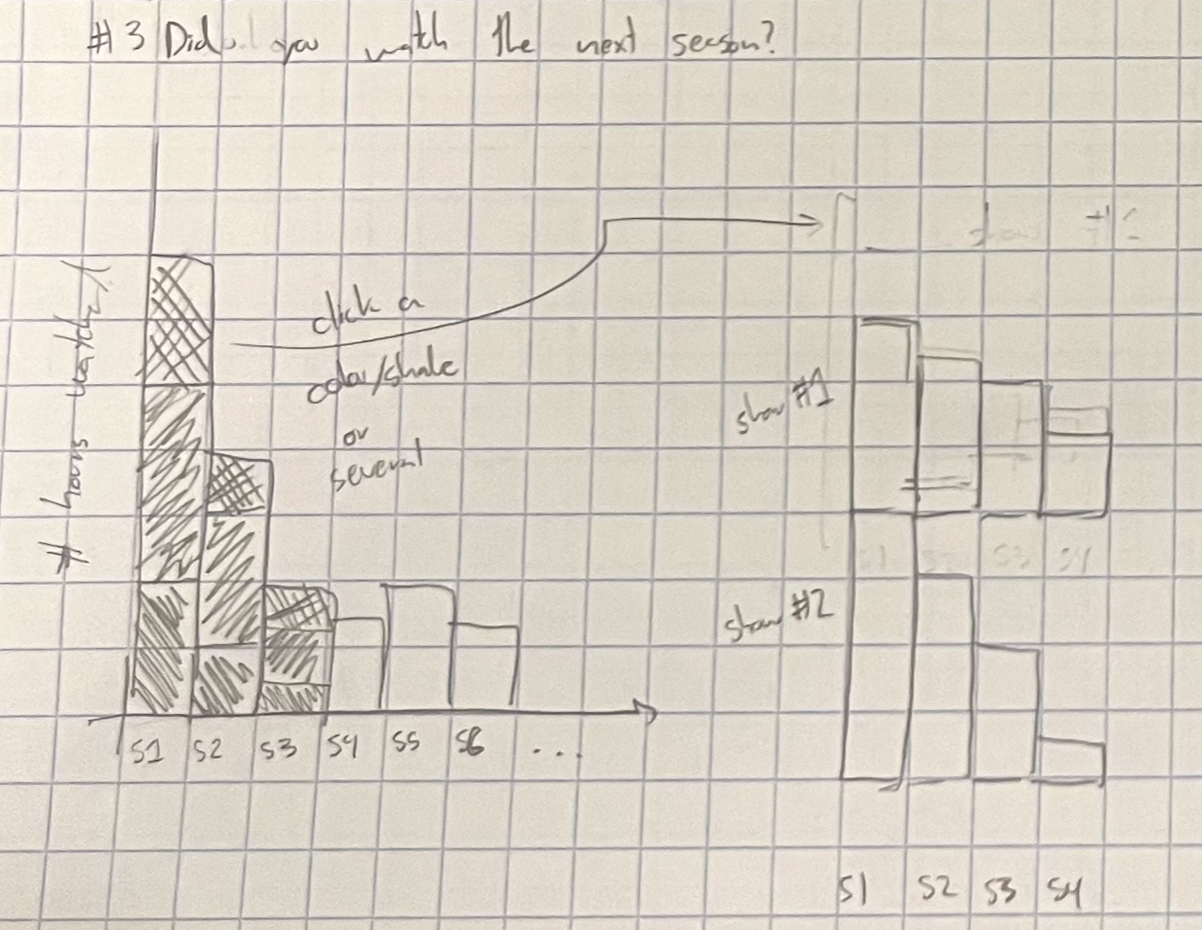 #3 Did you watch the next season?
# hours watched
click a
color/shade
or
several
show #1
show #2
S1 S2 S3 S4 S5 S6 ...
S1 S2 S3 S4
S1 S2 S3 S4